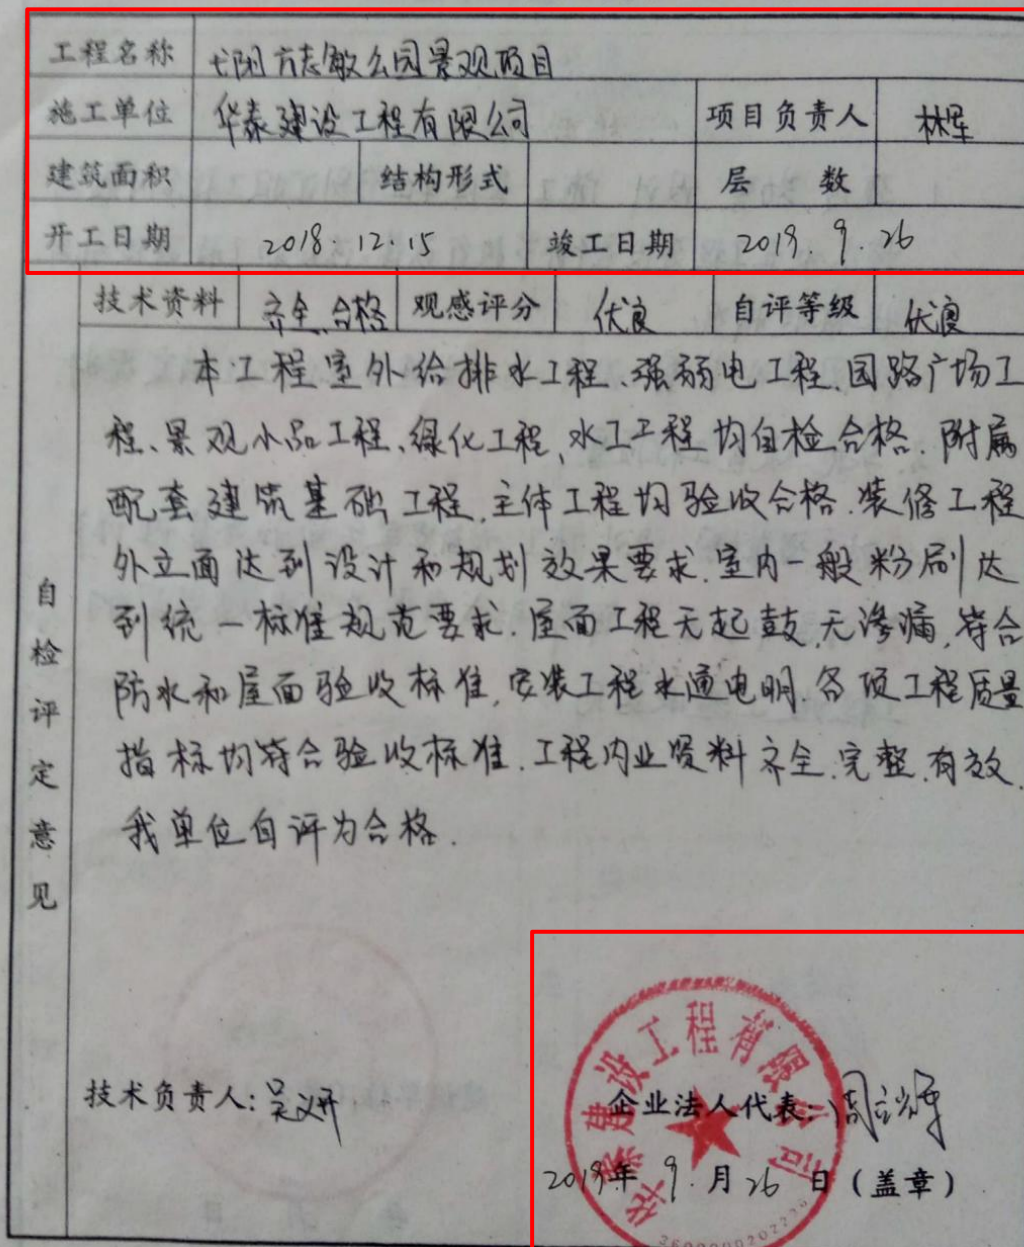 工程名称 弋阳方志敏公园景观项目
施工单位 华泰建设工程有限公司 项目负责人 林军
建筑面积 结构形式 层 数
开工日期 2018.12.15 竣工日期 2019.9.26
技术资料 齐全.合格 观感评分 优良 自评等级 优良
自检评定意见
本工程室外给排水工程、强弱电工程、园路广场工
程、景观小品工程、绿化工程、水工工程均自检合格.附属
配套建筑基础工程.主体工程均验收合格.装修工程
外立面达到设计和规划效果要求.室内一般粉刷达
到统一标准规范要求.屋面工程无起鼓,无渗漏,符合
防水和屋面验收标准,安装工程水通电明.各项工程质量
指标均符合验收标准.工程内业资料齐全.完整.有效.
我单位自评为合格.
技术负责人: 企业法人代表:
2019年 9.月26 日(盖章)
华泰建设工程有限公司